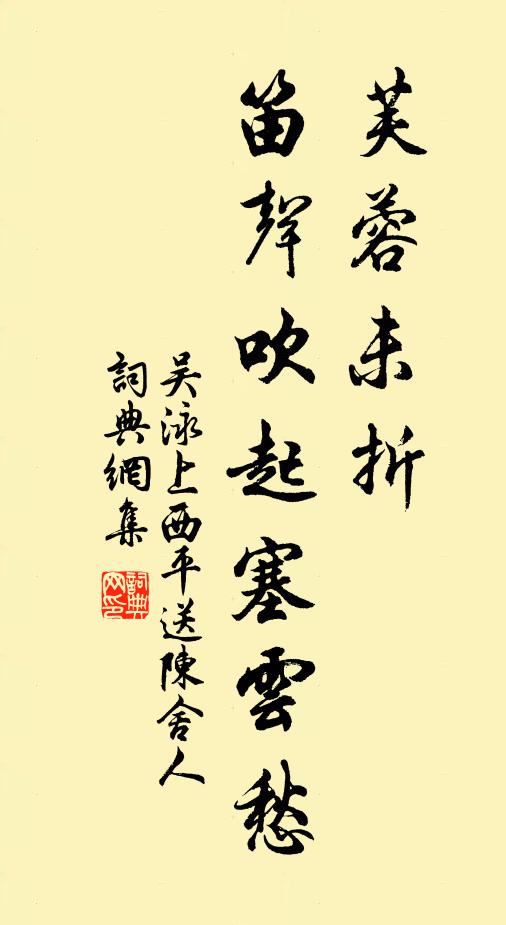 芙蓉未折
笛聲吹起塞雲愁
吴泳上西平送陳舍人
詞典網集
詞典网印